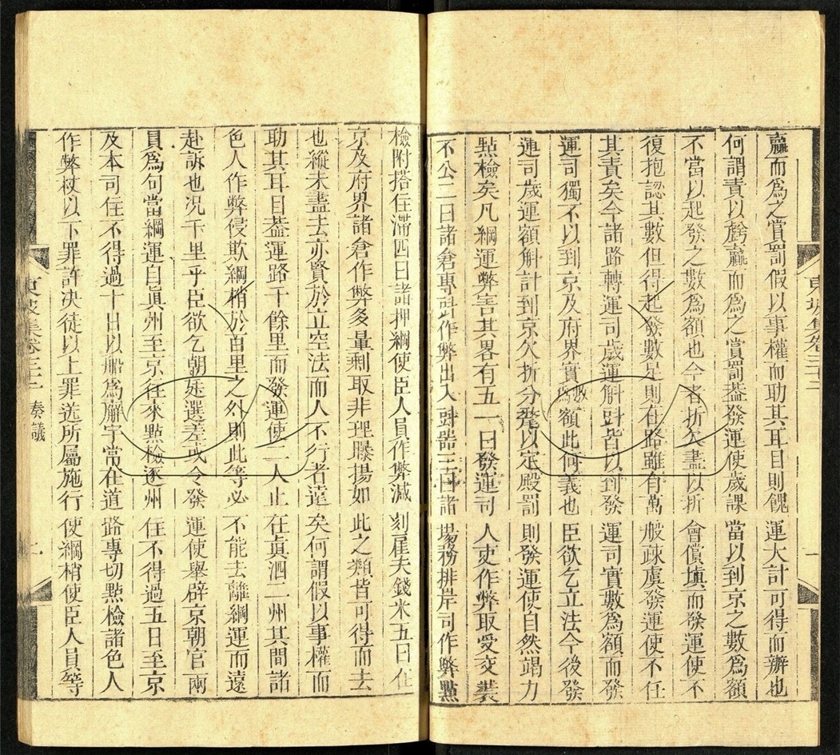 東坡集卷三十二
一
贏而爲之賞罰假以事權而助其耳目則餽運大計可得而辦也
何謂責以虧贏而爲之賞罰蓋發運使歲課當以到京之數爲額
不當以起發之數爲額也今者折欠盡以折會償填而發運使不
復抱認其數但得起發數足則在路雖有萬般疎虞發運使不任
其責矣今諸路轉運司歲運斛㪷皆以到發運司實數爲額而發
運司獨不以到京及府界實數爲額此何義也臣欲乞立法今後發
運司歲運額斛計到京欠折分釐以定殿罰則發運使自然竭力
點檢矣凡綱運弊害其畧有五一曰發運司人吏作弊取受交裝
不公二曰諸倉專㪷作弊出入㪷器三曰諸場務排岸司作弊點
檢附搭住滯四曰諸押綱使臣人員作弊減刻雇夫錢米五曰在
京及府界諸倉作弊多量剩取非理曝揚如此之類皆可得而去
也縱未盡去亦賢於立空法而人不行者遠矣何謂假以事權而
助其耳目蓋運路千餘里而發運使二人止在眞泗二州其間諸
色人作弊侵欺綱梢於百里之外則此等必不能去離綱運而遠
赴訴也況千里乎臣欲乞朝廷選差或令發運使舉辟京朝官兩
員爲勾當綱運自眞州至京往來點檢逐州住不得過五日至京
及本司住不得過十日以船爲廨宇常在道路專切點檢諸色人
作弊杖以下罪許決徒以上罪送所屬施行使綱梢使臣人員等
東坡集卷三十二 奏議